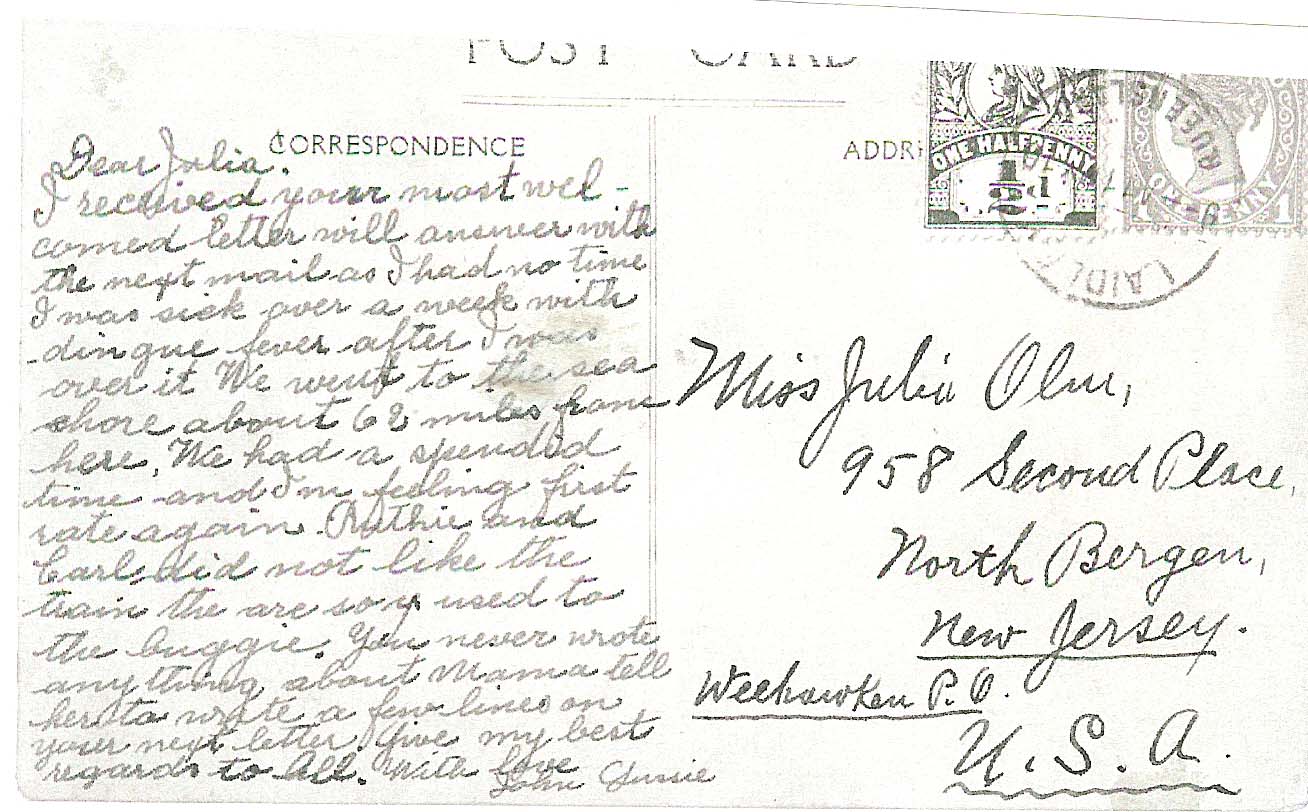 POST CARD
CORRESPONDENCE
Dear Julia.
I received your most wel-
comed letter will answer with
the next mail as I had no time
I was sick over a week with
dingue fever after I was
over it We went to the sea
shore about 62 miles from
here. We had a spendid
time and I'm feeling first
rate again. Ruthie and
Carl did not like the
train the are so used to
the buggie. You never wrote
anything about Mama tell
her to wrote a few lines on
your next letter. Give my best
regards to All. With love
John Gussie
ADDR
ONE HALFPENNY
1/2 d
ONE PENNY
1
QUEENSL
LAIDL
Miss Julia Olm,
958 Second Place,
North Bergen,
New Jersey.
Weehawken P.O.
U.S.A.